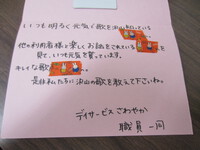 いつも明るく元気で歌を沢山
ている
他の利用者様と楽しくお話をされている
見て、いつも元気を貰っています。
キレイな歌
是非私たちに沢山の歌を教えて下さいね。
デイサービス さわやか
職員一同